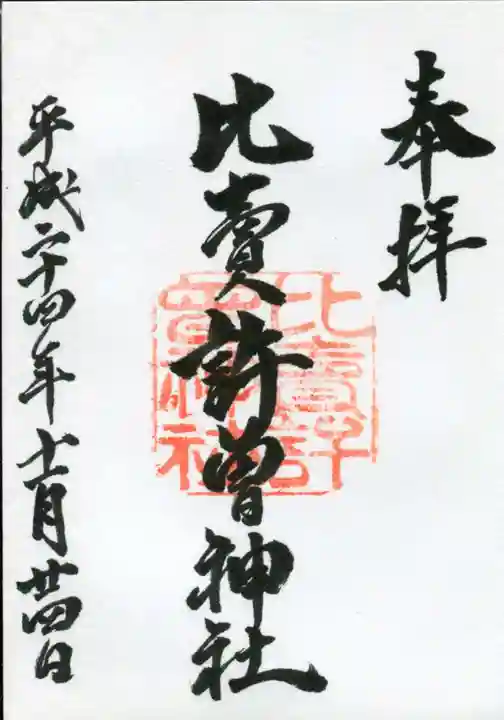 奉拝
比賣許曽神社
比賣許
曽神社
平成二十四年十一月廿四日